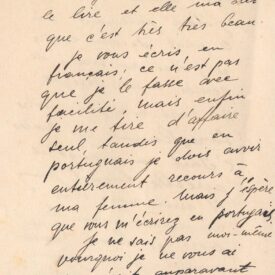 le lire et elle m'a dit
que c'est très très beau.
je vous écris en
français; ce n'est pas
que je le fasse avec
facilité, mais enfin
je me tire d'affaire
seul, tandis que en
portugais je dois avoir
entièrement recours à
ma femme. Mais j'espère
que vous m'écrirez en portugais.
Je ne sais pas moi-même
pourquoi je ne vous ai
auparavant